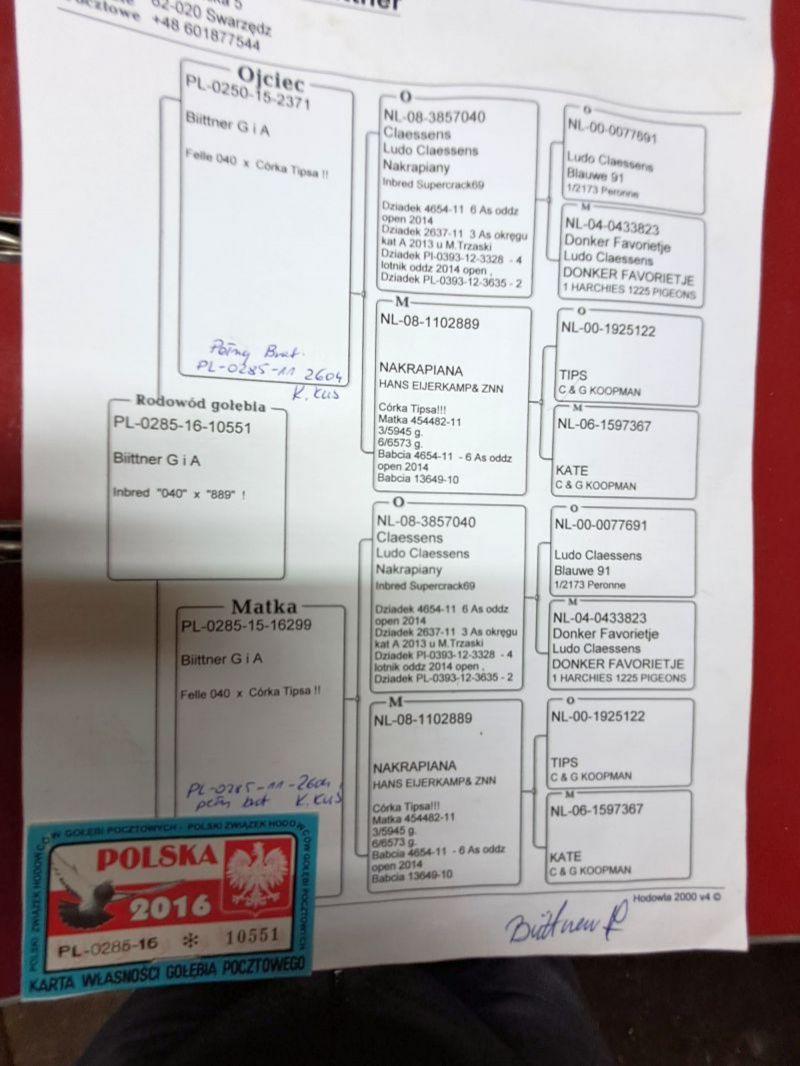 62-020 Swarzędz
+48 601877544
Ojciec
PL-0250-15-2371
Biittner G i A
Felle 040 x Córka Tipsa !!
Pełny Brat.
PL-0285-11 2604
K. KUS
O
NL-08-3857040
Claessens
Ludo Claessens
Nakrapiany
Inbred Supercrack69
Dziadek 4654-11 6 As oddz
open 2014
Dziadek 2637-11 3 As okręgu
kat A 2013 u M.Trzaski
Dziadek Pl-0393-12-3328 - 4
lotnik oddz 2014 open ,
Dziadek PL-0393-12-3635 - 2
O
NL-00-0077691
Ludo Claessens
Blauwe 91
1/2173 Peronne
M
NL-04-0433823
Donker Favorietje
Ludo Claessens
DONKER FAVORIETJE
1 HARCHIES 1225 PIGEONS
M
NL-08-1102889
NAKRAPIANA
HANS EIJERKAMP& ZNN
Córka Tipsa!!!
Matka 454482-11
3/5945 g.
6/6573 g.
Babcia 4654-11 - 6 As oddz
open 2014
Babcia 13649-10
O
NL-00-1925122
TIPS
C & G KOOPMAN
M
NL-06-1597367
KATE
C & G KOOPMAN
Rodowód gołębia
PL-0285-16-10551
Biittner G i A
Inbred "040" x "889" !
Matka
PL-0285-15-16299
Biittner G i A
Felle 040 x Córka Tipsa !!
PL-0285-11-2604,
pełny brat K. KUS
O
NL-08-3857040
Claessens
Ludo Claessens
Nakrapiany
Inbred Supercrack69
Dziadek 4654-11 6 As oddz
open 2014
Dziadek 2637-11 3 As okręgu
kat A 2013 u M.Trzaski
Dziadek Pl-0393-12-3328 - 4
lotnik oddz 2014 open ,
Dziadek PL-0393-12-3635 - 2
O
NL-00-0077691
Ludo Claessens
Blauwe 91
1/2173 Peronne
M
NL-04-0433823
Donker Favorietje
Ludo Claessens
DONKER FAVORIETJE
1 HARCHIES 1225 PIGEONS
M
NL-08-1102889
NAKRAPIANA
HANS EIJERKAMP& ZNN
Córka Tipsa!!!
Matka 454482-11
3/5945 g.
6/6573 g.
Babcia 4654-11 - 6 As oddz
open 2014
Babcia 13649-10
O
NL-00-1925122
TIPS
C & G KOOPMAN
M
NL-06-1597367
KATE
C & G KOOPMAN
Hodowla 2000 v4 ©
POLSKI ZWIĄZEK HODOWCÓW GOŁĘBI POCZTOWYCH - POLSKI ZWIĄZEK HODOWCÓW GOŁĘBI POCZTOWYCH
POLSKA
2016
PL-0285-16 * 10551
KARTA WŁASNOŚCI GOŁĘBIA POCZTOWEGO